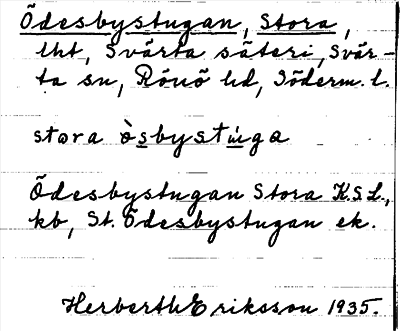 Ödesbystugan, Stora,
lht, Svärta säteri, Svär-
ta sn, Rönö hd, Söderm. l.
stora òsbystúga
Ödesbystugan Stora K.S.L.,
kb, St. Ödesbystugan ek.
Herberth Eriksson 1935.